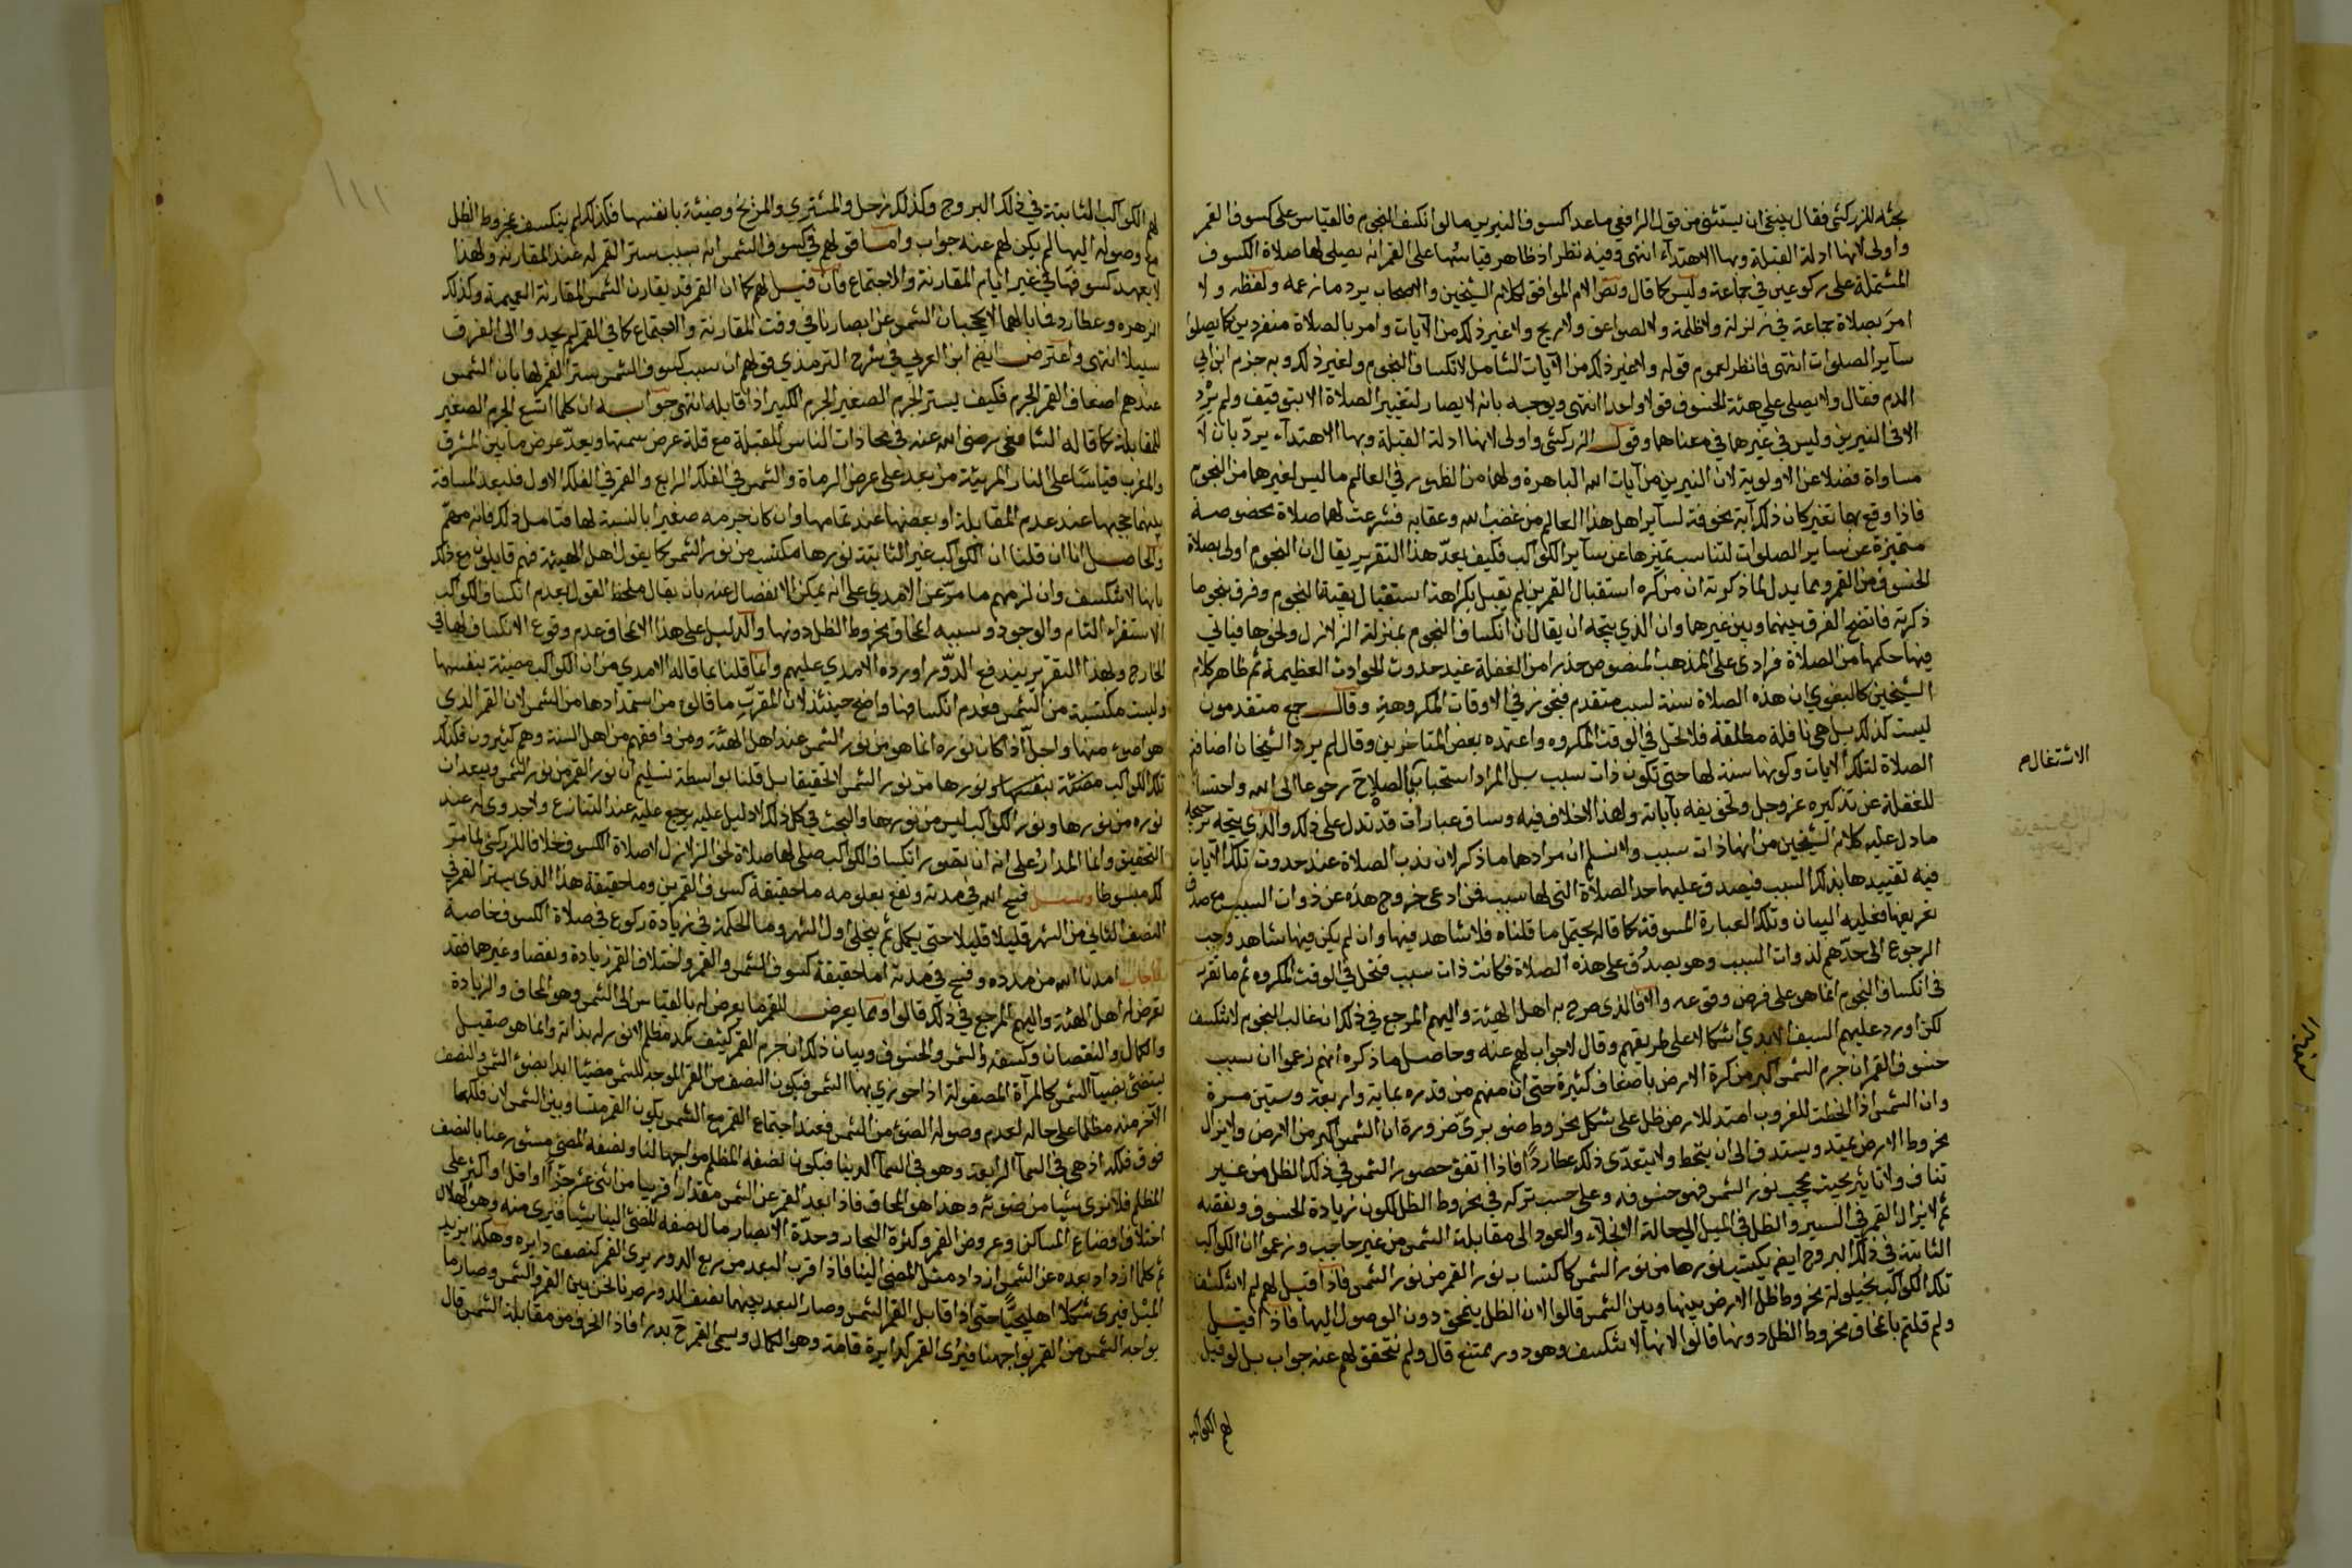 بحثه للزركشي فقال ينبغي ان يستثنى من قول الرافعي ما عدا كسوف النيرين ما لو انكسف النجوم فالقياس على كسوف القمر
واولى لانها ادلة القبلة وبها الاهتداء انتهى وفيه نظر اذ ظاهر قياسها على القمر انه يصلى لها صلاة الكسوف
المشتملة على ركوعين في جماعة وليس كما قال ونص الام الموافق لكلام الشيخين والاصحاب يرد ما زعمه ولفظه ولا
امر بصلاة جماعة في زلزلة ولا ظلمة ولا لصواعق ولا ريح ولا غير ذلك من الآيات وامر بالصلاة منفردين كما يصلون
ساير الصلوات انتهى فانظر لعموم قوله ولا غير ذلك من الآيات الشامل لانكساف النجوم ولغير ذلك وبه جزم ابن ابي
الدم فقال ولا يصلى على هئة الخسوف قولا واحدا انتهى ويوجه بانه لا يصار لتغيير الصلاة الا بتوقيف ولم يرد
الا في النيرين وليس في غيرهما في معناهما وقول الزركشي واولى لانها ادلة القبلة وبها الاهتداء يرد بان لا
مساواة فضلا عن الاولوية لان النيرين من آيات الله الباهرة ولهما من الظهور في العالم ما ليس لغيرهما من النجوم
فاذا وقع بهما تغير كان ذلك آية مخوفة لساير اهل هذا العالم من غضب الله وعقابه فشرعت لهما صلاة مخصوصة
متميزة عن ساير الصلوات لتناسب تميزها عن ساير الكواكب فكيف بعد هذا التقرير يقال ان النجوم اولى بصلاة
الخسوف من القمر ومما يدل لما ذكرته ان من كره استقبال القمرين لم يقل بكراهة استقبال بقية النجوم وفرق بنحو ما
ذكرته فاتضح الفرق بينهما وبين غيرهما وان الذي يتجه ان يقال ان انكساف النجوم بمنزلة الزلازل ونحوها فياتي
فيها حكمها من الصلاة فرادى على المذهب المنصوص حذرا من الغفلة عند حدوث الحوادث العظيمة ثم ظاهر كلام
الشيخين كالبغوي ان هذه الصلاة سنة لسبب متقدم فتجوز في الاوقات المكروهة وقال جمع متقدمون
ليست كذلك بل هي نافلة مطلقة فلا تحل في الوقت المكروه واعتمده بعض المتاخرين وقال لم يرد الشيخان اضافة
الصلاة لتلك الآيات وكونها سنة لها حتى تكون ذات سبب بل المراد استحباب الصلاة ح رجوعا الى الله واحتسا
الاشتغال
للغفلة عن تذكيره عز وجل وتخويفه بآياته ولهذا لا خلاف فيه وساق عبارات قد تدل على ذلك والذي يتجه ترجيحه
ما دل عليه كلام الشيخين من انها ذات سبب ولا نسلم ان مرادهما ما ذكر لان ندب الصلاة عند حدوث تلك الآيات
فيه تقييدها بذلك السبب فيصدق عليها حد الصلاة التي لها سبب فمن ادعى خروج هذه عن ذوات السبب مع صدق
تعريفها فعليه البيان وتلك العبارة المسوقة كما قاله يحتمل ما قلناه فلا شاهد فيها وان لم يكن فيها شاهد وجب
الرجوع الى حدهم لذوات السبب وهو يصدق على هذه الصلاة فكانت ذات سبب فتحل في الوقت المكروه ثم ما تقرر
في انكساف النجوم انما هو على فرض وقوعه والا فالذي صرح به اهل الهيئة واليهم المرجع في ذلك ان غالب النجوم لا تنكسف
لكن اورد عليهم السيف الآمدي اشكالا على طريقهم وقال لا جواب لهم عنه وحاصل ما ذكره انهم زعموا ان سبب
خسوف القمر ان جرم الشمس اكبر من كرة الارض باضعاف كثيرة حتى ان منهم من قدره بماية واربعة وستين مرة
وان الشمس اذا انحطت للغروب امتد للارض ظل على شكل مخروط صنوبري ضرورة ان الشمس اكبر من الارض ولا يزال
مخروط الارض يمتد ويستدق الى ان ينحط ولا يتعدى ذلك عطارد فاذا اتفق حصور الشمس في ذلك الظل من غير
تناف ولا تاثير بحيث يحجب نور الشمس فهو خسوفه وعلى حسب تركه في مخروط الظل تكون زيادة الخسوف ونقصه
ثم لا يزال القمر في السير والظل في الميل الى حالة الانجلاء والعود الى مقابلة الشمس من غير حاجب وزعموا ان الكواكب
الثابتة في فلك البروج ايض يكتسب نورها من نور الشمس كاكتساب نور القمر من نور الشمس فاذا قيل لهم لم لا تنكسف
تلك الكواكب بحيلولة مخروط ظل الارض بينها وبين الشمس قالوا لان الظل ينمحق دون الوصول اليها فاذا قيل
ولم قلتم بانمحاق مخروط الظل دونها قالوا لانها لا تنكسف وهو دور ممتنع قال ولم يتحقق لهم عنه جواب بل لو قيل
لهم الكواكب
لهم الكواكب الثابتة في فلك البروج وكذلك زحل والمشتري والمريخ مضيئة بانفسها فكذلك لم ينكسف بمخروط الظل
مع وصوله اليها لم يكن لهم عنه جواب واما قولهم في كسوف الشمس انه بسبب ستر القمر له عند المقارنة ولهذا
لا يعهد كسوفها في غير ايام المقارنة والاجتماع فان قيل لهم كما ان القمر قد يقارن الشمس المقارنة العميمة وكذلك
الزهره وعطارد فما بالهما لا يحجبان الشمس عن ابصارنا في وقت المقارنة والاجتماع كما في القمر لم يجدوا الى الفرق
سبيلا انتهى واعترض ايض ابن العربي في شرح الترمذي قولهم ان سبب كسوف الشمس ستر القمر لها بان الشمس
عندهم اضعاف القمر لجرم فكيف يستر الجرم الصغير الجرم الكبير اذا قابله انتهى جوابه ان كلما اتسع الجرم الصغير
للمقابلة كما قاله الشافعي رضي الله عنه في محاذات الناس للقبلة مع قلة عرض سمتها وبعد عرض ما بين المشرق
والمغرب قياسا على النار المرئية من بعد على عرض الرماة والشمس في الفلك الرابع والقمر في الفلك الاول فلبعد المسافة
بينهما يحجبها عند عدم المقابلة او بعضها عند تمامها وان كان جرمه صغيرا بالنسبة لها فتامل ذلك فانه مهم
والحاصل انا ان قلنا ان الكواكب غير الثابتة نورها مكتسب من نور الشمس كما يقول اهل الهيئة فهم قايلون مع ذلك
بانها لا تنكسف وان لزمهم ما مر عن الامدي على انه يمكن الانفصال عنه بان يقال ملحظ القول بعدم انكساف الكواكب
الاستقراء التام والوجود وسببه انمحاق مخروط الظل دونها والدليل على هذا الانمحاق عدم وقوع الانكساف لها في
الخارج ولهذا التقرير يندفع الدور اورده الامدي عليهم وانما قلنا بما قاله الامدي من ان الكواكب مضيئة بنفسها
وليست مكتسبة من الشمس فعدم انكسافها واضح حينئذ لان المقرب ما قالوه من استمدادها من الشمس لان القمر الذي
هو اضوء منها واجل اذا كان نوره انما هو من نور الشمس عند اهل الهئة ومن وافقهم من اهل السنة وهم كثيرون فكذلك
تلك الكواكب مضئة بنفسها ونورها من نور الشمس لا تحقيقا بل قلنا بواسطة تسليم ان نور القمر من نور الشمس وبيعد ان
نوره من نورها ونور الكواكب ليس من نورها والبحث في كل ذلك لا دليل عليه يرجع عليه عند التنازع ولا جدوى له عند
التحقيق وانما المدار على انه ان تصور انكساف الكواكب صلى لها صلاة نحو الزلازل لا صلاة الكسوف خلافا للزركشي لما مر
لك مبسوطا وسئل فسح الله في مدته ونفع بعلومه ما حقيقة كسوف القمرين وما حقيقة هذا الذي يستر القمر في
النصف الثاني من الشهر قليلا قليلا حتى يكمل ثم ينجلي اول الشهر وما الحكمة في زيادة ركوع في صلاة الكسوف خاصة
فاجاب امدنا الله من مدده وفسح في مدته اما حقيقة كسوف الشمس والقمر واختلاف القمر زيادة ونقصا وغيرهما فقد
تعرض له اهل الهئة واليهم المرجع في ذلك قالوا ومما يعرض للقمر ما يعرض له بالقياس الى الشمس وهو المحاق والزيادة
والكمال والنقصان وكسفه والشمس والخسوف وبيان ذلك ان جرم القمر كثيف كمد مظلم لا نور له بذاته وانما هو صقيل
يستضئ بضيآ الشمس كالمرآة المصقولة اذا حوذي بها الشمس فيكون النصف من القمر الموجه للشمس مضيئا ابدا بضوء الشمس والنصف
الآخر منه مظلما على حاله لعدم وصول الضوء من الشمس فعند اجتماع القمر مع الشمس يكون القمر بيننا وبين الشمس لان فلكها
فوق فلكه اذ هي في السمآ الرابعة وهو في السمآ الدنيا فيكون نصفه المظلم مواجها لنا ونصفه المضئ مستور عنا بالنصف
المظلم فلا نرى شيا من ضوئه وهذا هو المحاق فاذا بعد القمر عن الشمس مقدارا قريبا من اثنى عشر جزءا او اقل او اكثر على
اختلاف اوضاع المساكن وعروض القمر وكثرة البخار وحدة الابصار مال نصفه المضئ الينا شيا فنرى منه وهو الهلال
ثم كلما ازداد بعده عن الشمس ازداد ميل المضئ الينا فاذا قرب البعد من ربع الدور يرى القمر كنصف دايره وهكذا يزيد
الميل فيرى شكلا اهليلجيا حتى اذا قابل القمر الشمس وصار البعد بينهما نصف الدور صرنا نحن بين القمر والشمس وصار ما
يواجه الشمس من القمر يواجهنا فيرى القمر كدايرة تامة وهو الكمال ويسمى القمر ح بدرا فاذا انحرف من مقابلة الشمس قال